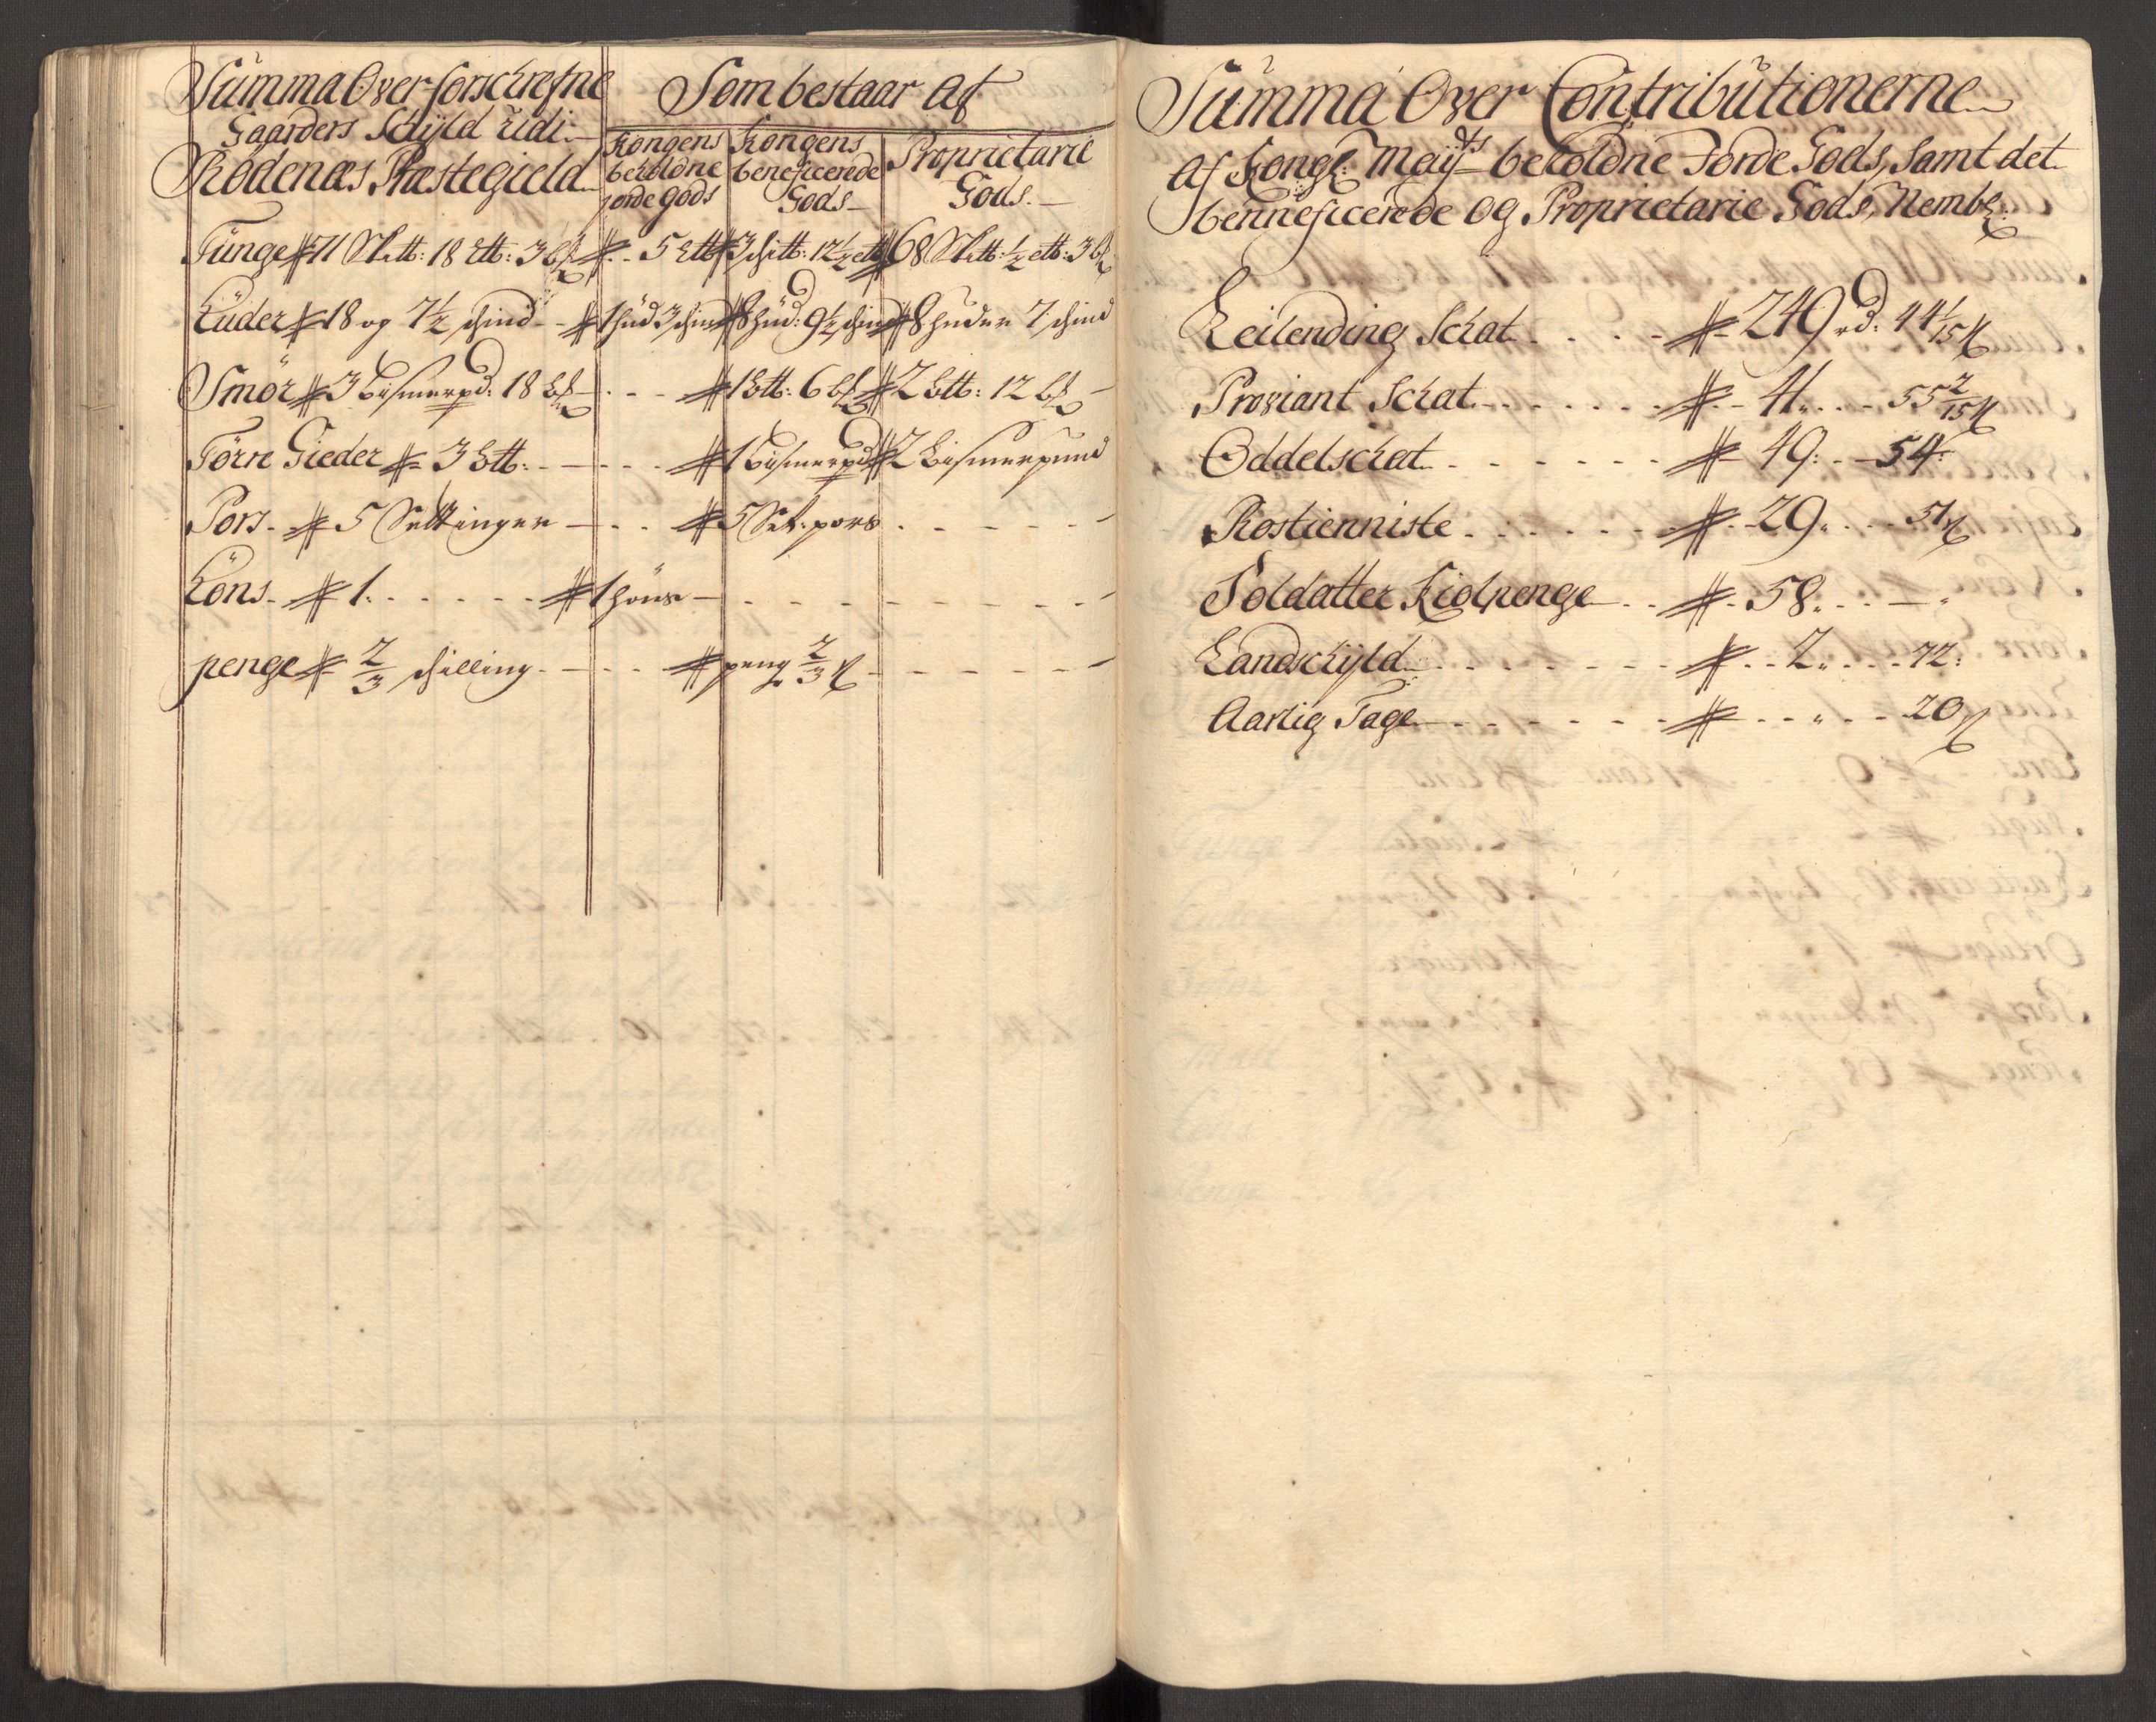 Summa Over forschrefne
Gaarders Schyld udi
Rödenæs Præstegield
Som bestaar Af
Kongens beholdne jorde gods
Kongens beneficerede Gods
Proprietarie Gods.
Tunge # 71 Sk℔: 18 L℔: 3 b # - 5 L℔ # 3 sch℔: 12½ L℔ # 68 Sk℔: ½ L℔: 3 b
Huder # 18 og 7½ schind - # 1 hud 3 schind # 8 hud: 9½ schind # 8 huder 7 schind
Smör # 3 bismerpd: 18 b - - - # 1 b℔: 6 b # 2 b℔: 12 b -
Törre Gieder # 3 b℔: - - - - # 1 bismerpd # 2 bismerpund
Pors - # 5 Settinger - - - # 5 Set: pors - - - - -
Höns - # 1. - - - - - # 1 höns - - - - - - - - -
penge # ⅔ schilling - - - - # peng ⅔ - - - - -
Summa Over Contributionerne
Af Kongl: Mayts beholdne Jorde Gods, samt det
benneficerede Og Proprietarie Gods, Nembl:
Leilending Schat - - - - # 249 rd: 44 1/15
Proviant Schat - - - - - - # - - 41 - - - 55 2/15
Oddelschat - - - - - - # 49: - - 54:
Rostienniste - - - - - # - 29 - - - 51
Soldatter Kiolpenge - - # - 58 - - - -
Landschyld - - - - - - - # - - 2 - - - 72:
Aarlig Tage - - - - - - # - - " - - - 20